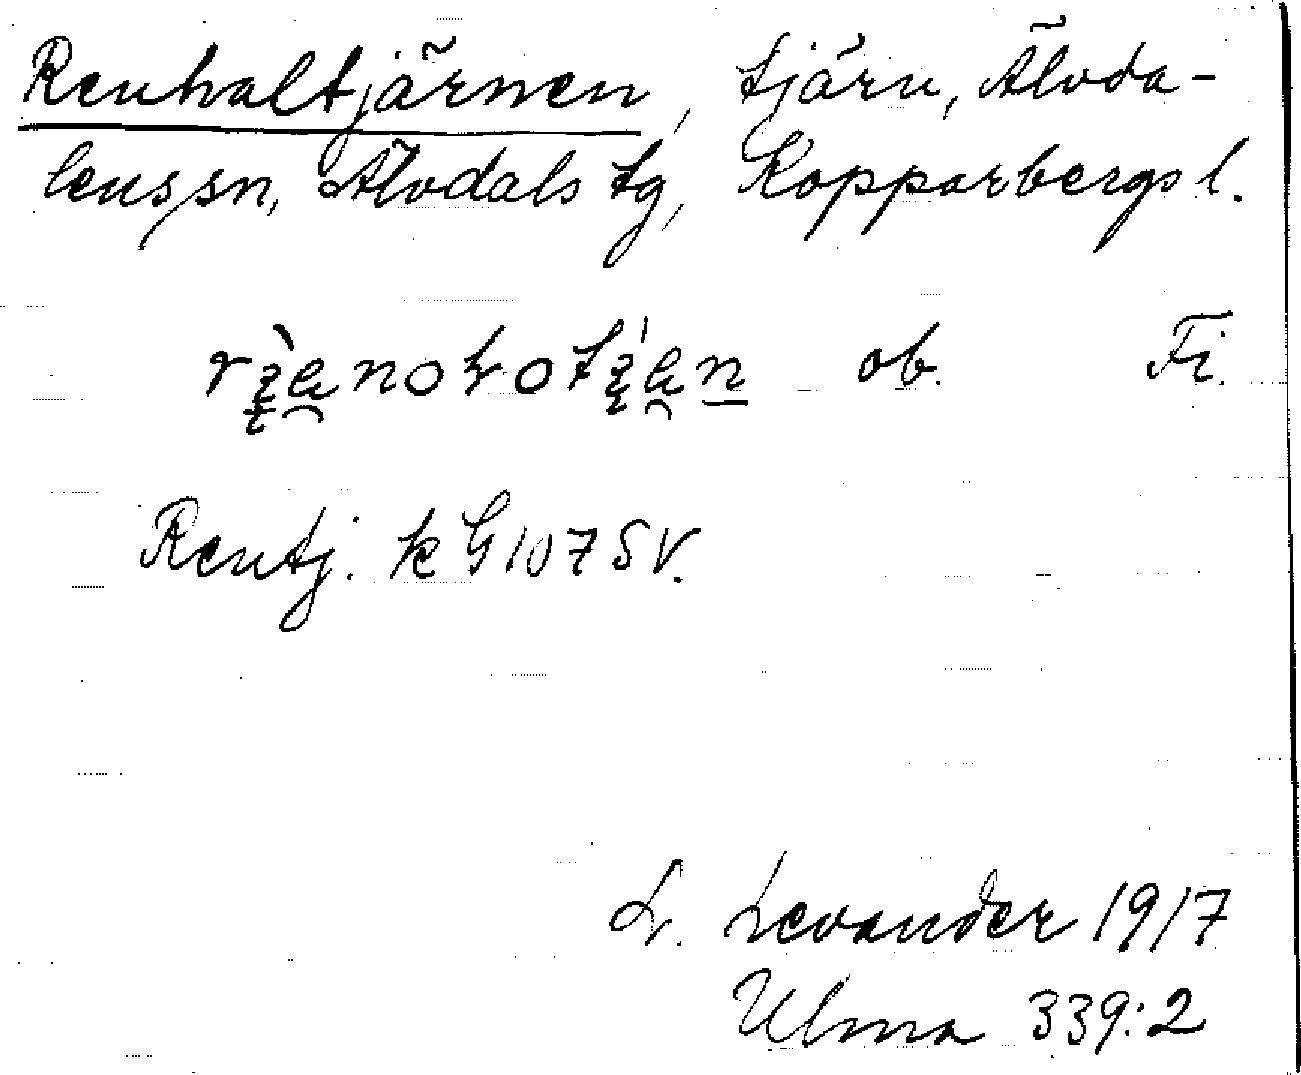 Renhaltjärnen, tjärn, Älvda-
lens sn, Älvdals tg, Kopparbergs l.
ob. Fi.
Rentj. k G 107 SV.
L. Levander 1917
Ulma 339:2